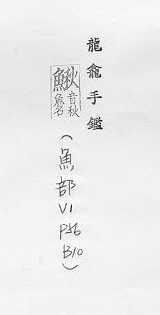 龍龕手鑑
鰍音秋魚名
(魚部
VI
P56
B10)